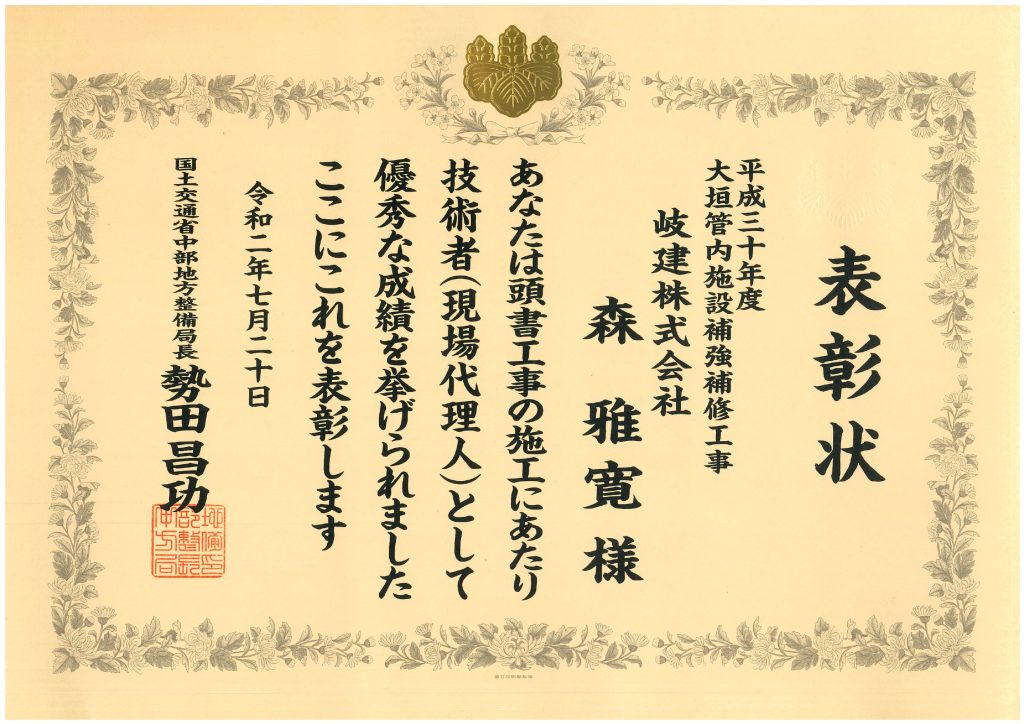 表彰状
平成三十年度
大垣管内施設補強補修工事
岐建株式会社
森雅寛様
あなたは頭書工事の施工にあたり
技術者(現場代理人)として
優秀な成績を挙げられました
ここにこれを表彰します
令和二年七月二十日
国土交通省中部地方整備局長 勢田昌功